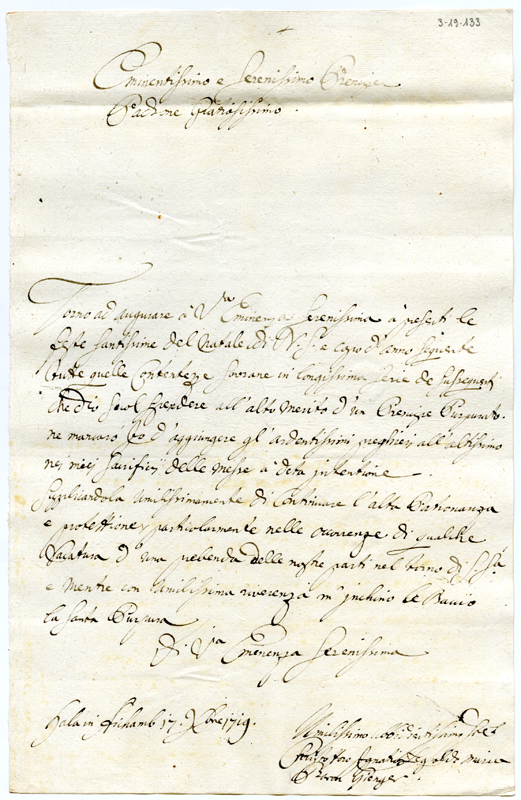 3-19-133
Eminentissimo e Serenissimo Prencipe
Padrone Gratiosissimo.
Torno ad augurare à V.ra Eminenza Serenissima à presenti le
feste santissime del Natale di N: S: e capo d'anno seguente
tutte quelle contentezze sovrane in longissima serie de susseguenti
che Dio suol spendere all'alto merito d'un Prencipe Purpurato.
ne mancarò d'aggiungere gl'ardentissimi preghieri all'altissimo
nei miei sacrificij delle messe à detta intentione.
Supplicandola umilissimamente di continuare l'alta Padronanza
e protettione, particolarmente nelle occorrenze di qualche
Vacatura d'una prebenda delle nostre parti nel turno di
e mentre con umilissima riverenza m'inchino le Bacio
la santa Purpura
Di V.ra Eminenza Serenissima
17. Xbre 1719.
Umilissimo
Ignatio Leopoldo
Baron